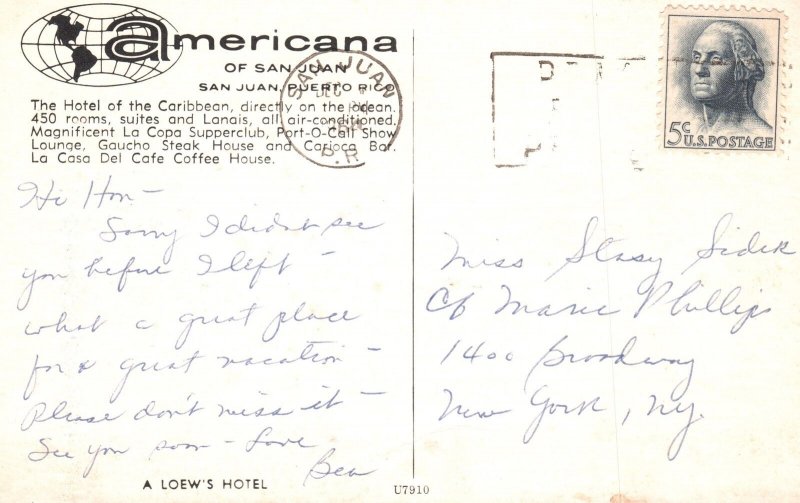 americana
OF SAN JUAN
SAN JUAN, PUERTO RICO
The Hotel of the Caribbean, directly on the ocean.
450 rooms, suites and Lanais, all air-conditioned.
Magnificent La Copa Supperclub, Port-O-Call Show
Lounge, Gaucho Steak House and Carioca Bar.
La Casa Del Cafe Coffee House.
SAN JUAN
DEC
PM
P.R.
5c
U.S. POSTAGE
Hi Hon -
Sorry I didnt see
you before I left -
what a great place
for a great vacation -
Please don't miss it -
See you soon - Love
Bea
Miss Stasy Sidek
c/o Marie Phillips
1400 Broadway
New York, NY.
A LOEW'S HOTEL
U7910